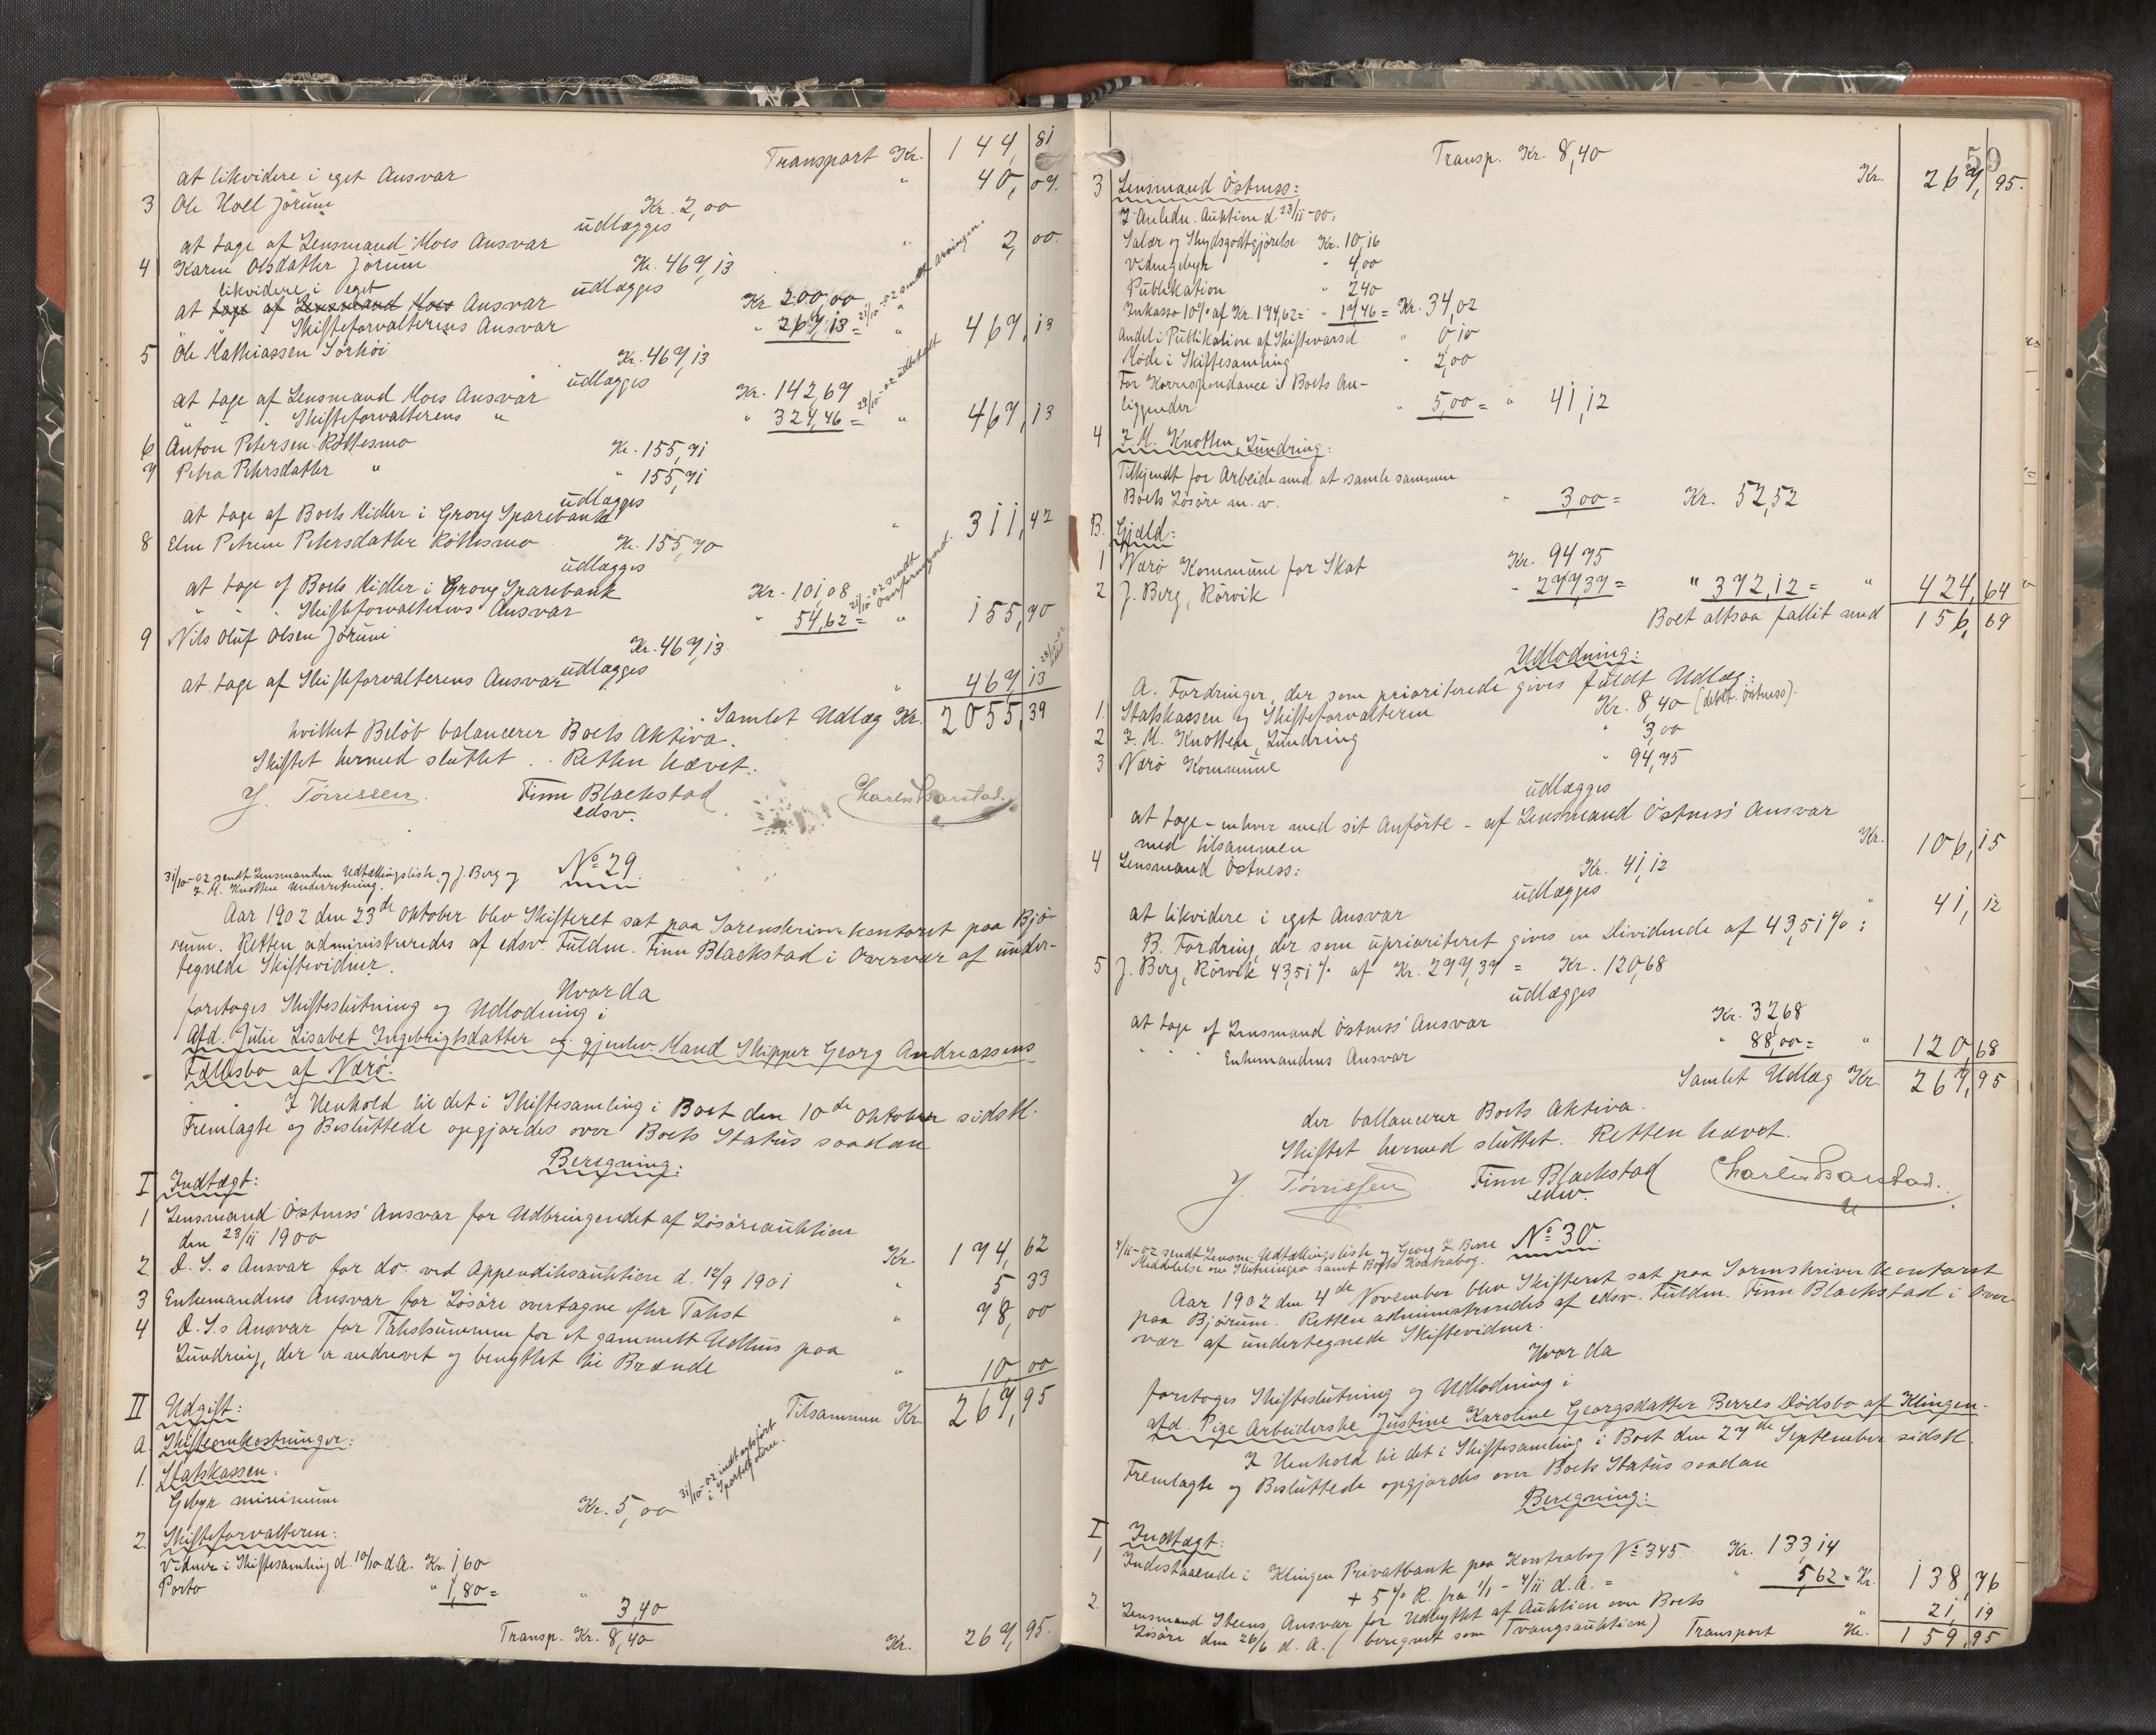 Transport Kr. 144,81
at likvidere i eget Ansvar " 40,04.
3 Ole Hoel Jörum Kr. 2,00
udlægges
at tage af Lensmand Moes Ansvar " 2,00.
4 Karen Olsdatter Jörum Kr. 467,13
udlægges
likvidere i eget
at tage af Lensmand Moes Ansvar Kr 200,00
" " Skifteforvalterens Ansvar " 267,13 = " 467,13
5 Ole Mathiassen Sörhöi Kr. 467,13
udlægges
at tage af Lensmand Moes Ansvar Kr. 142,67
" " " Skifteforvalterens " " 324,46 = " 467,13
23/10-02 udbetalt
6 Anton Petersen Röttesmo Kr. 155,71
7 Petra Petersdatter " " 155,71
udlægges
at tage af Boets Midler i Grong Sparebank " 311,42
8 Elen Petrine Petersdatter Röttesmo Kr. 155,70
udlægges
at tage af Boets Midler i Grong Sparebank Kr. 101,08
" " " Skifteforvalterens Ansvar " 54,62 = " 155,70
21/10-02 sendt Overformynd.
9 Nils Oluf Olsen Jörum Kr. 467,13
udlægges
at tage af Skifteforvalterens Ansvar " 467,13
Samlet Udlæg Kr. 2055,39
hvilket Belöb balancerer Boets Aktiva.
Skiftet hermed sluttet. Retten hævet.
J. Törrissen. Finn Blackstad Charles Barstad.
edsv.
No 29.
31/10-02 sendt Lensmanden Udtællingsliste og J. Berg og
F. M. Knotten Underretning.
Aar 1902 den 23de Oktober blev Skifteret sat paa Sorenskriverkontoret paa Bjö-
rum. Retten administreredes af edsv. Fuldm. Finn Blackstad i Overvær af under-
tegnede Skiftevidner.
Hvorda
foretoges Skifteslutning og Udlodning i
Afd. Julie Lisabet Ingebrigtsdatter og gjenlev. Mand Skipper Georg Andreassens
Fællesbo af Nærö.
I Henhold til det i Skiftesamling i Boet den 10de Oktober sidstl.
Fremlagte og Besluttede opgjordes over Boets Status saadan
Beregning:
I Indtægt:
1 Lensmand Östness' Ansvar for Udbringendet af Lösöreauktion
den 23/11 1900 Kr. 174,62
2. D. S.s Ansvar for do ved Appendiksauktion d. 12/9 1901 " 5 33
3 Enkemandens Ansvar for Lösöre overtagne efter Takst " 78,00
4 D. S.s Ansvar for Takstsummen for et gammelt Udhus paa
Lundring, der er nedrevet og benyttet til Brænde " 10,00
Tilsammen Kr. 267,95
II Udgift:
A. Skifteomkostninger:
1. Statskassen:
Gebyr minimum Kr. 5,00
2. Skifteforvalteren:
Vidner i Skiftesamling d. 10/10 d.A. Kr. 1,60
Porto " 1,80 = " 3,40
Transp. Kr. 8,40 Kr. 267,95.
50
Transp. Kr. 8,40 Kr. 267,95.
3 Lensmand Östness:
I Anledn. Auktion d. 23/11-00:
Salær og Skydsgodtgjörelse Kr. 10,16
Vidnegebyr " 4,00
Publikation " 2,40
Inkasso 10% af Kr. 174,62 = " 17,46 = Kr. 34,02
Andel i Publikation af Skiftevarsel " 0,10
Möde i Skiftesamling " 2,00
For Korrespondance i Boets An-
liggender " 5,00 = " 41,12
4 F. M. Knotten, Lundring:
Tilkjendt for Arbeide med at samle sammen
Boets Lösöre m. v. " 3,00 = Kr. 52,52
B. Gjæld:
1 Nærö Kommune for Skat Kr. 94,75
2 J. Berg, Rörvik " 277,37 = " 372,12 = " 424,64
Boet altsaa fallit med 156,69
Udlodning:
A. Fordringer, der som prioriterede gives fuldt Udlæg:
1. Statskassen og Skifteforvalteren Kr. 8,40 (debit. Östness).
2 F. M. Knotten, Lundring " 3,00
3 Nærö Kommune " 94,75
udlægges
at tage - enhver med sit Anförte - af Lensmand Östness' Ansvar
med tilsammen Kr. 106,15
4 Lensmand Östness: Kr. 41,12
udlægges
at likvidere i eget Ansvar " 41,12
B. Fordring, der som uprioriteret gives en Dividende af 43,51%:
5 J. Berg, Rörvik 43,51% af Kr. 277,37 = Kr. 120,68
udlægges
at tage af Lensmand Östness' Ansvar Kr. 32,68
" " " Enkemandens Ansvar " 88,00 = " 120,68
Samlet Udlæg Kr. 267,95
der ballancerer Boets Aktiva.
Skiftet hermed sluttet. Retten hævet.
J. Törrissen Finn Blackstad Charles Barstad.
edsv.
No 30.
4/11-02 sendt Lensm. Udtællingsliste og Georg J. Berre
Meddelelse om Slutningen samt Boets Kontrabog.
Aar 1902 den 4de November blev Skifteret sat paa Sorenskriverkontoret
paa Björum. Retten administreredes af edsv. Fuldm. Finn Blackstad i Over-
vær af undertegnede Skiftevidner.
Hvorda
foretoges Skifteslutning og Udlodning i
afd. Pige Arbeiderske Justine Karoline Georgsdatter Berres Dödsbo af Klingen.
I Henhold til det i Skiftesamling i Boet den 27de September sidstl.
Fremlagte og Besluttede opgjordes over Boets Status saadan
Beregning:
I Indtægt:
1 Indestaaende i Klingen Privatbank paa Kontrabog No 345 Kr. 133,14
+ 5% R. fra 1/1 - 4/11 d. A. = " 5,62 = Kr. 138,76
2. Lensmand Steens Ansvar for Udbyttet af Auktion over Boets
Lösöre den 26/6 d. A. (beregnet som Tvangsauktion) " 21,19
Transport Kr. 159,95